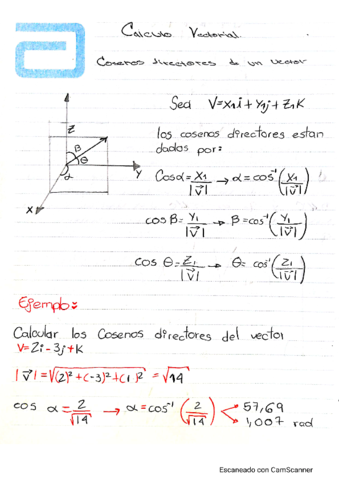 Calculo Vectorial.
Cosenos directores de un vector
Sea V=x1i+y1j+z1K
Z
β
θ
α
Y
X
los cosenos directores estan
dados por:
Cosα=X1/|V⃗| → α=cos⁻¹(X1/|V⃗|)
cos β=Y1/|V⃗| → β=cos⁻¹(Y1/|V⃗|)
cos θ=Z1/|V⃗| → θ= cos⁻¹(Z1/|V⃗|)
Ejemplo:
Calcular los Cosenos directores del vector
V=2i-3j+K
|V⃗|=√(2)²+(-3)²+(1)² =√14
cos α=2/√14 → α=cos⁻¹(2/√14) 57,69
1,007 rad
Escaneado con CamScanner